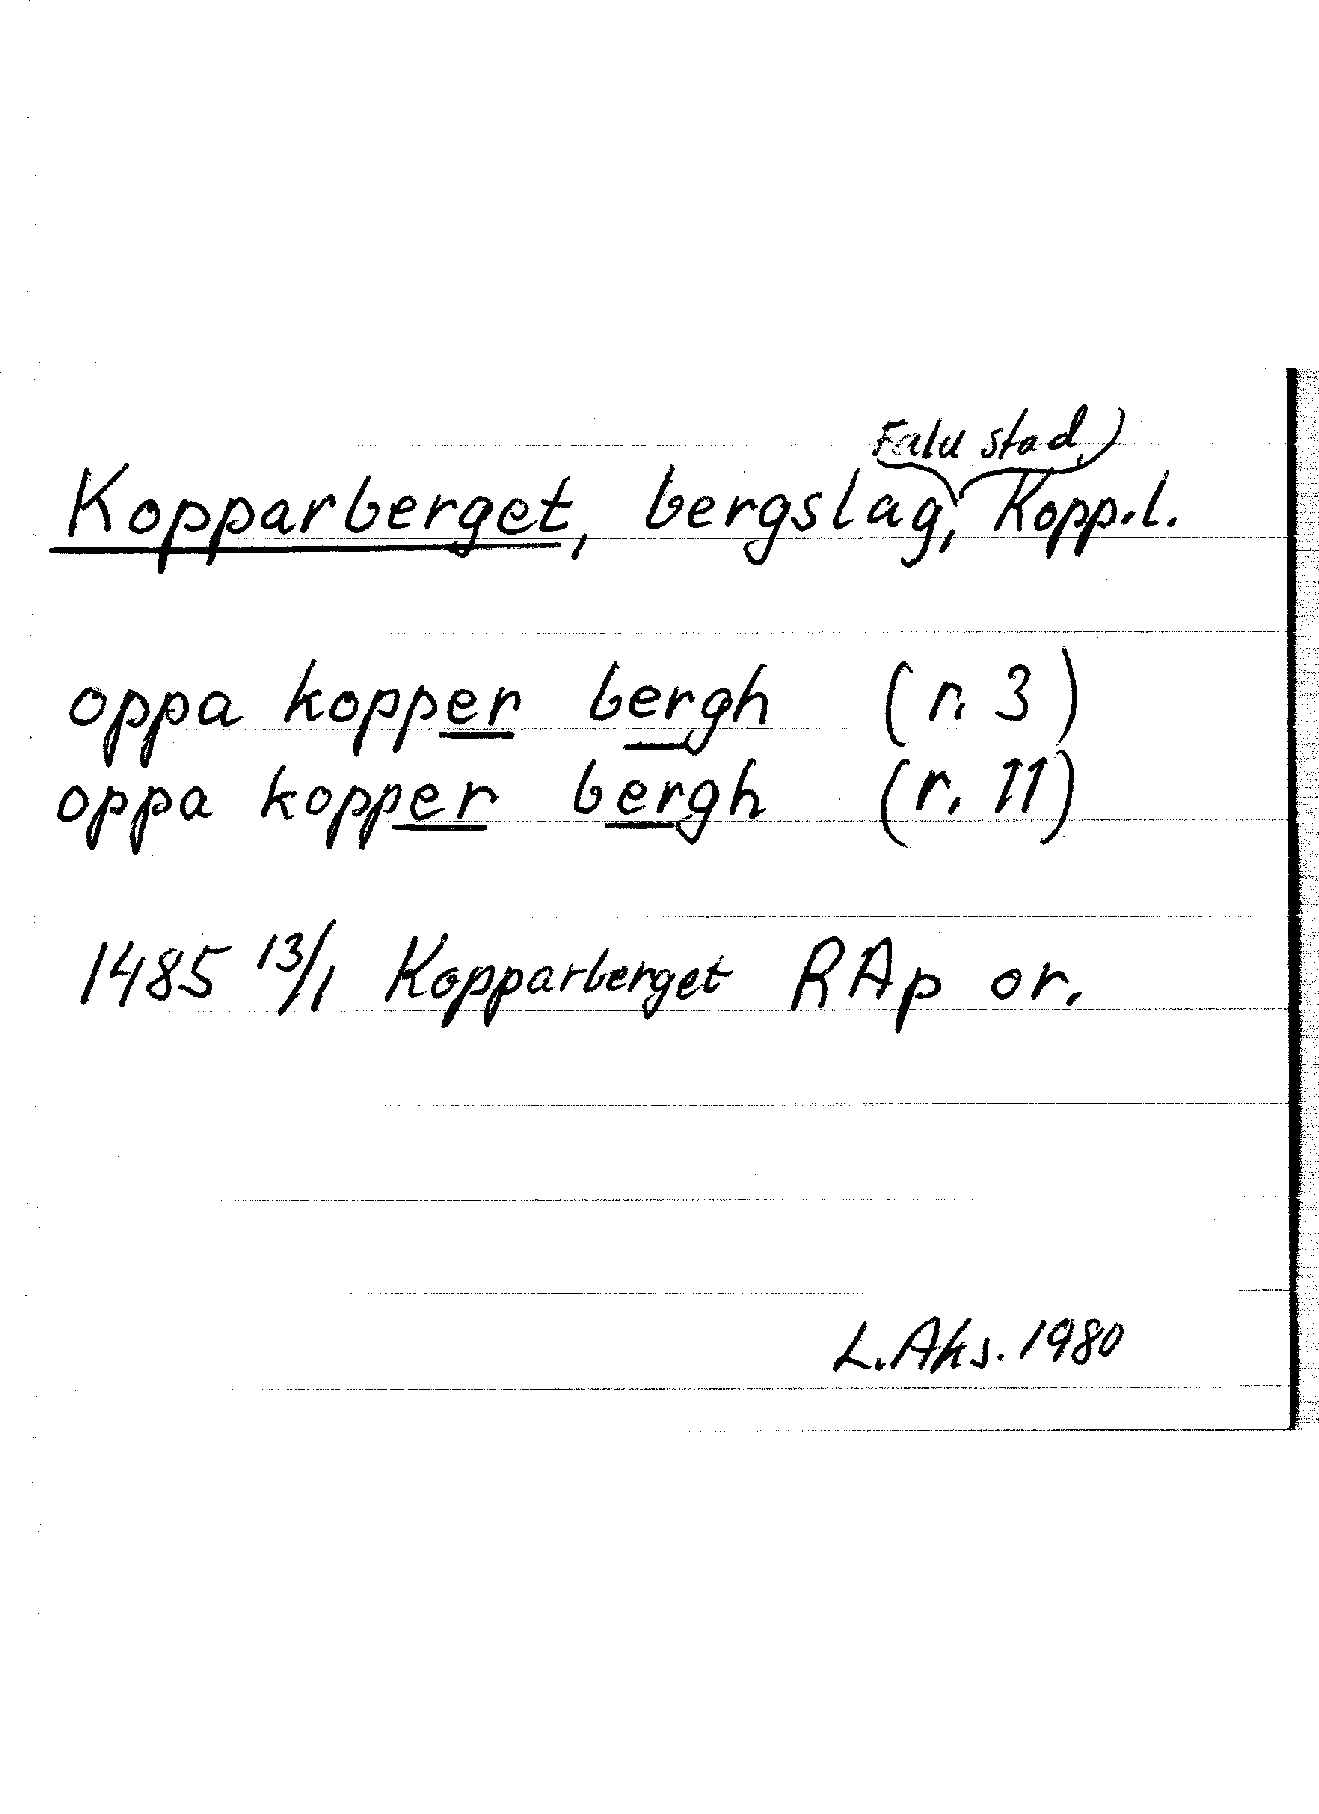 Falu stad,
Kopparberget, bergslag, Kopp.l.
oppa kopper bergh (r. 3)
oppa kopper bergh (r. 11)
1485 13/1 Kopparberget RAp or.
L. Aks. 1980